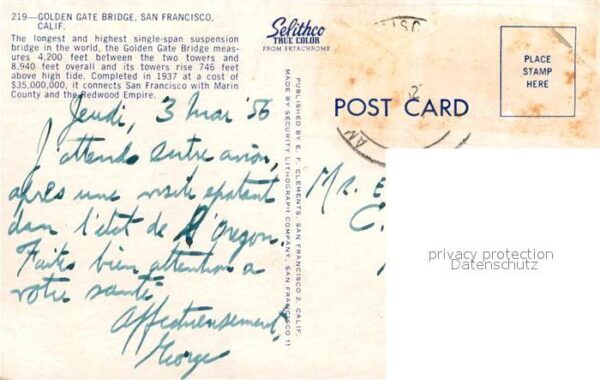 219—GOLDEN GATE BRIDGE, SAN FRANCISCO,
CALIF.
The longest and highest single-span suspension
bridge in the world, the Golden Gate Bridge meas-
ures 4,200 feet between the two towers and
8,940 feet overall and its towers rise 746 feet
above high tide. Completed in 1937 at a cost of
$35,000,000, it connects San Francisco with Marin
County and the Redwood Empire.
Selithco
TRUE COLOR
FROM EKTACHROME
POST CARD
PLACE
STAMP
HERE
AM
PUBLISHED BY E. F. CLEMENTS, SAN FRANCISCO 2, CALIF.
MADE BY SECURITY LITHOGRAPH COMPANY, SAN FRANCISCO 11
Jeudi, 3 mai '56
J'attends entre avion,
après une visite epatant
dan l'état de l'Oregon.
Faites bien attention a
votre santé
Affectueusement,
George
Mr. E
C.
privacy protection
Datenschutz